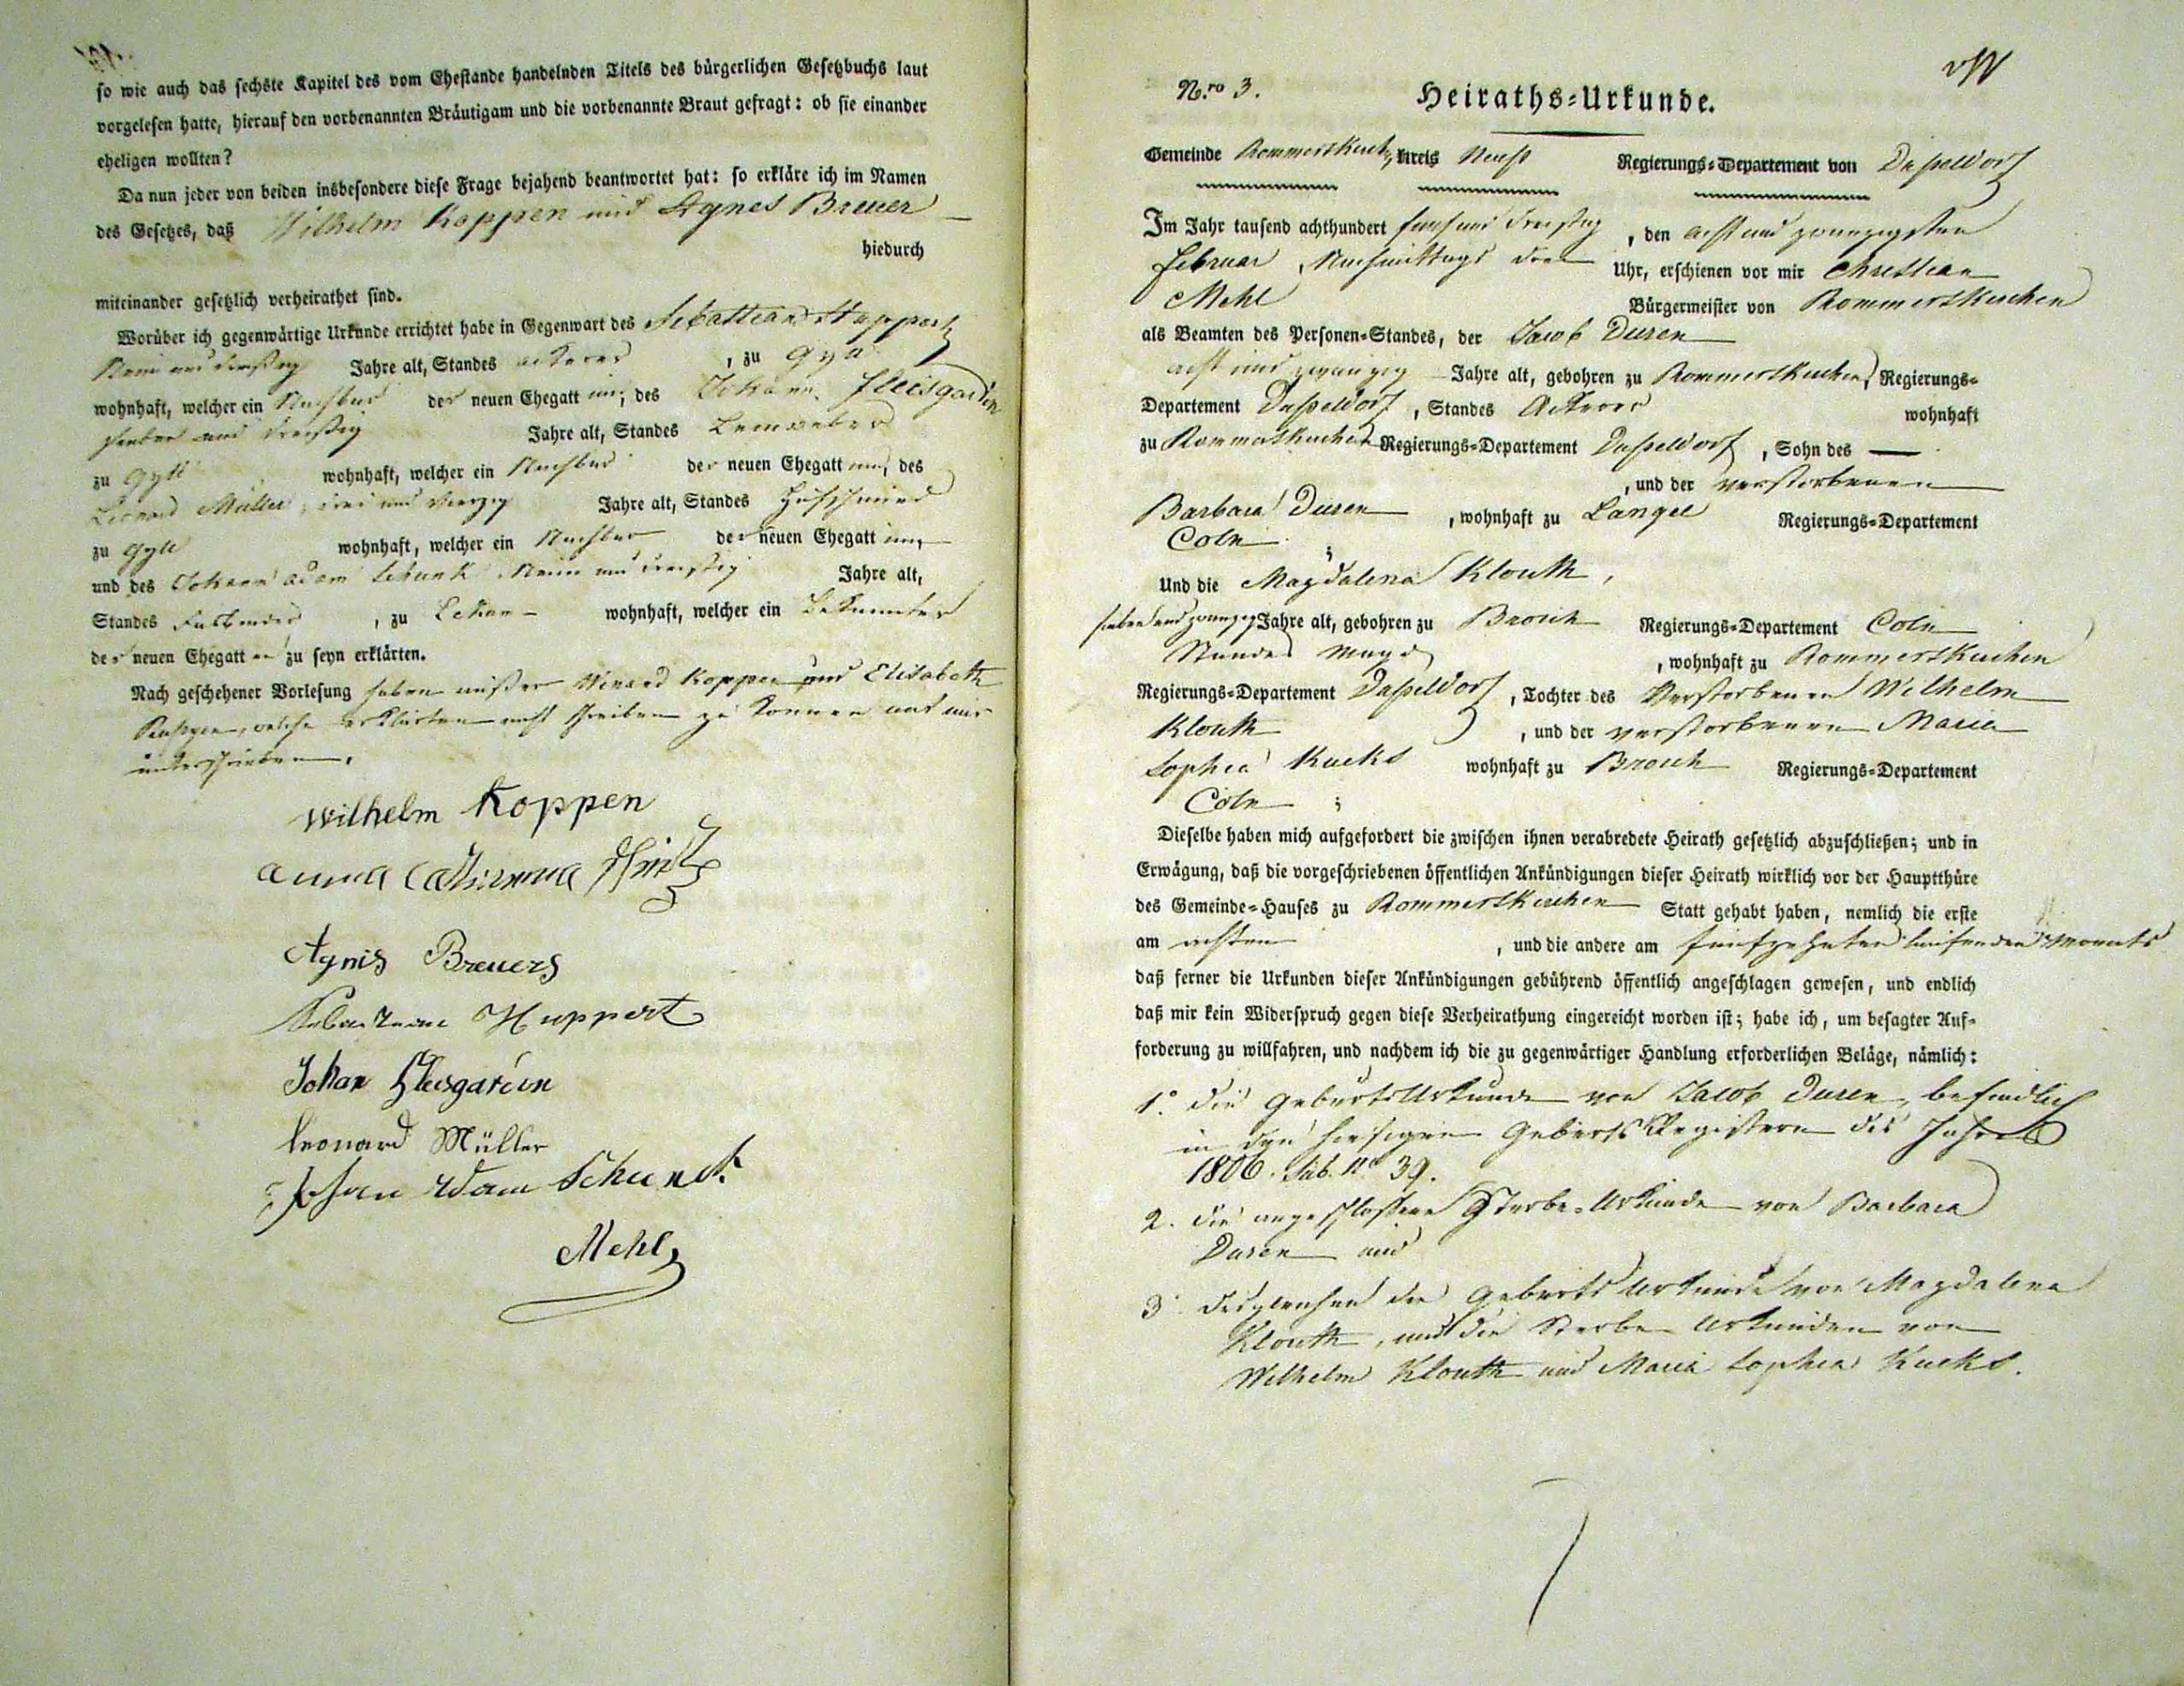 so wie auch das sechste Kapitel des vom Ehestande handelnden Titels des bürgerlichen Gesetzbuchs laut
vorgelesen hatte, hierauf den vorbenannten Bräutigam und die vorbenannte Braut gefragt: ob sie einander
eheligen wollten?
Da nun jeder von beiden insbesondere diese Frage bejahend beantwortet hat: so erkläre ich im Namen
des Gesetzes, daß Wilhelm Koppen und Agnes Breuer
hiedurch
miteinander gesetzlich verheirathet sind.
Worüber ich gegenwärtige Urkunde errichtet habe in Gegenwart des Sebastian Huppertz
Neun und dreißig Jahre alt, Standes Ackerer, zu Gyll
wohnhaft, welcher ein Nachbar der neuen Ehegattinn, des Johann Fleisgarten
sieben und dreißig Jahre alt, Standes Leinweber
zu Gyll wohnhaft, welcher ein Nachbar der neuen Ehegattinn, des
Leonard Müller, drei und vierzig Jahre alt, Standes Hufschmied
zu Gyll wohnhaft, welcher ein Nachbar der neuen Ehegattinn,
und des Johann Adam Schunk, Neun und dreißig Jahre alt,
Standes Faßbinder, zu Eckum wohnhaft, welcher ein Bekannter
der neuen Ehegatten zu seyn erklärten.
Nach geschehener Vorlesung haben außer Winand Koppen und Elisabeth
welche erklärten nicht schreiben zu können mit mir
unterschrieben.
Wilhelm Koppen
anna Catharina
Agnis Breuers
Sebastian Huppertz
Johan Fleisgarten
Leonard Müller
Johan Adam Schunck
Mehl
N.ro 3.
Heiraths-Urkunde.
Gemeinde Rommerskirchen, Kreis Neuß Regierungs-Departement von Düßeldorf
Im Jahr tausend achthundert fünf und dreißig, den acht und zwanzigsten
Februar, Nachmittags drei Uhr, erschienen vor mir Christian
Mehl Bürgermeister von Rommerskirchen
als Beamten des Personen-Standes, der Jacob Duren
acht und zwanzig Jahre alt, gebohren zu Rommerskirchen, Regierungs-
Departement Düßeldorf, Standes Ackerer wohnhaft
zu Rommerskirchen Regierungs-Departement Düßeldorf, Sohn des —
, und der verstorbenen
Barbara Duren, wohnhaft zu Langel Regierungs-Departement
Coln ;
Und die Magdalena Klouth,
sieben und zwanzig Jahre alt, gebohren zu Broich Regierungs-Departement Coln
Standes Magd, wohnhaft zu Rommerskirchen
Regierungs-Departement Düßeldorf, Tochter des Verstorbenen Wilhelm
Klouth, und der verstorbenen Maria
Sophia Kucks wohnhaft zu Broich Regierungs-Departement
Cöln ;
Dieselbe haben mich aufgefordert die zwischen ihnen verabredete Heirath gesetzlich abzuschließen; und in
Erwägung, daß die vorgeschriebenen öffentlichen Ankündigungen dieser Heirath wirklich vor der Hauptthüre
des Gemeinde-Hauses zu Rommerskirchen Statt gehabt haben, nemlich die erste
am achten, und die andere am fünfzehnten laufenden Monats
daß ferner die Urkunden dieser Ankündigungen gebührend öffentlich angeschlagen gewesen, und endlich
daß mir kein Widerspruch gegen diese Verheirathung eingereicht worden ist; habe ich, um besagter Auf-
forderung zu willfahren, und nachdem ich die zu gegenwärtiger Handlung erforderlichen Beläge, nämlich:
1° die Geburts Urkunde von Jacob Duren, befindlich
in den hiesigen Geburts Registern des Jahres
1806. sub. N° 39.
2. die angeschloßene Sterbe-Urkunde von Barbara
Duren und
3. desgleichen die Geburts Urkunde von Magdalena
Klouth, und die Sterbe Urkunden von
Wilhelm Klouth und Maria Sophia Kucks.